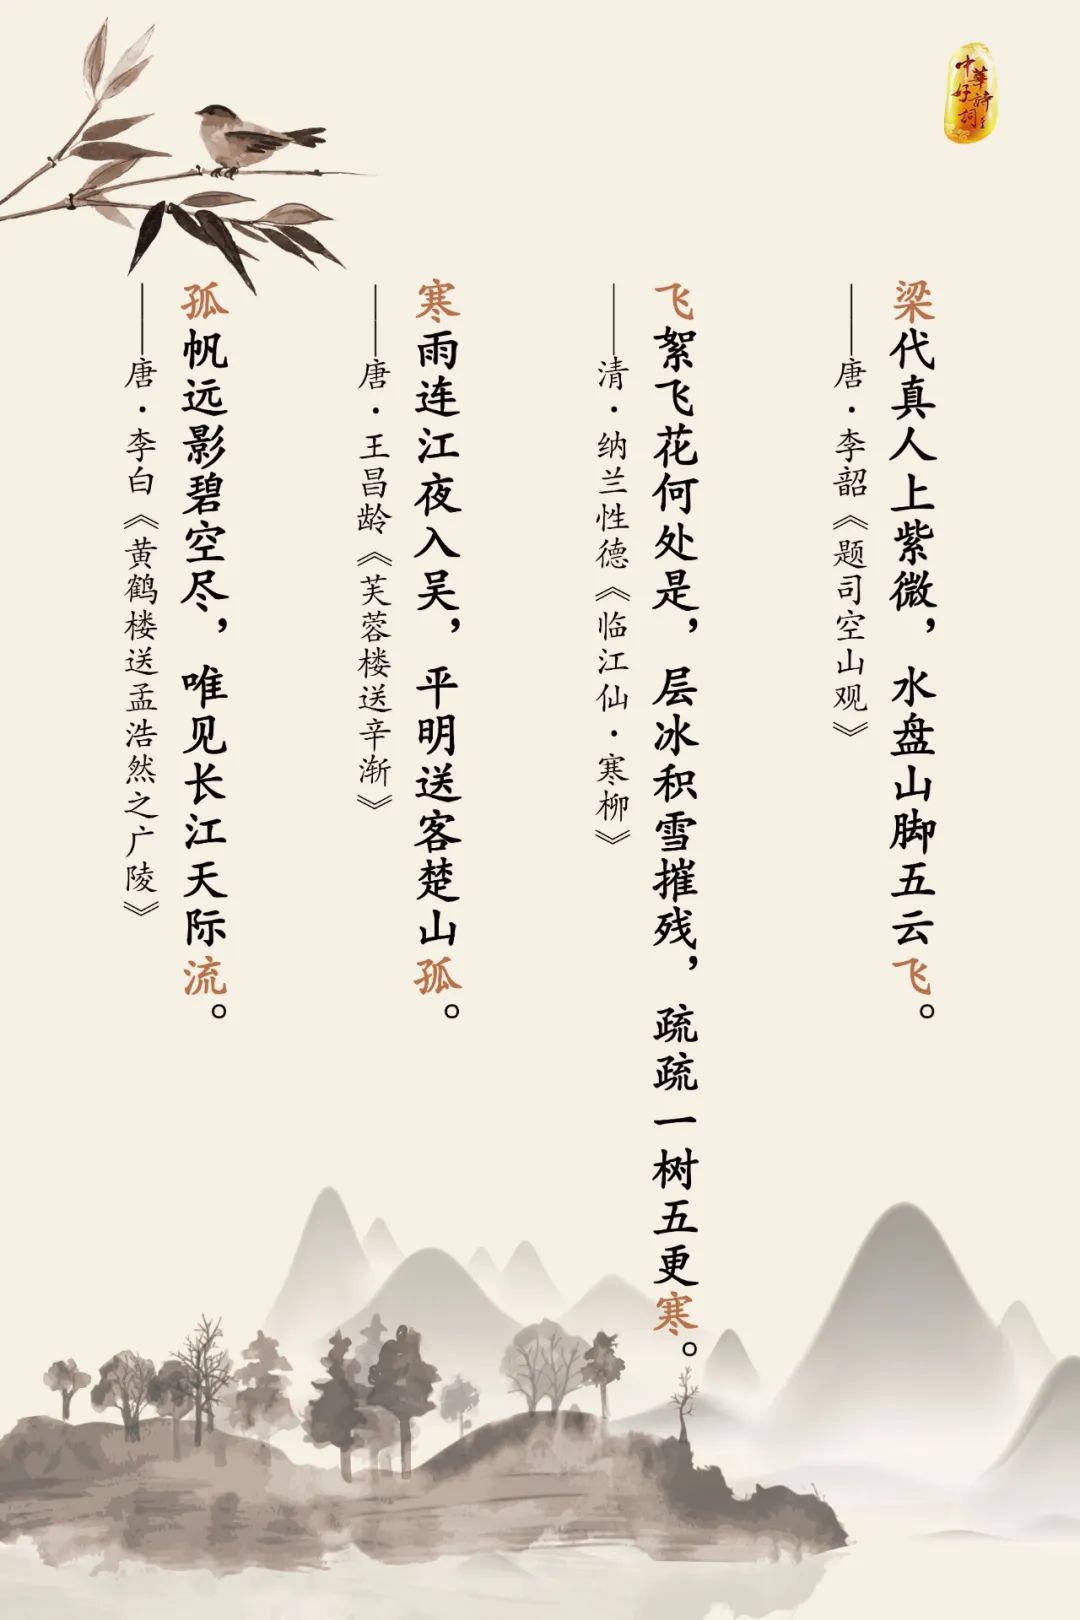 中华好诗词
梁代真人上紫微，水盘山脚五云飞。
——唐·李韶《题司空山观》
飞絮飞花何处是，层冰积雪摧残，疏疏一树五更寒。
——清·纳兰性德《临江仙·寒柳》
寒雨连江夜入吴，平明送客楚山孤。
——唐·王昌龄《芙蓉楼送辛渐》
孤帆远影碧空尽，唯见长江天际流。
——唐·李白《黄鹤楼送孟浩然之广陵》